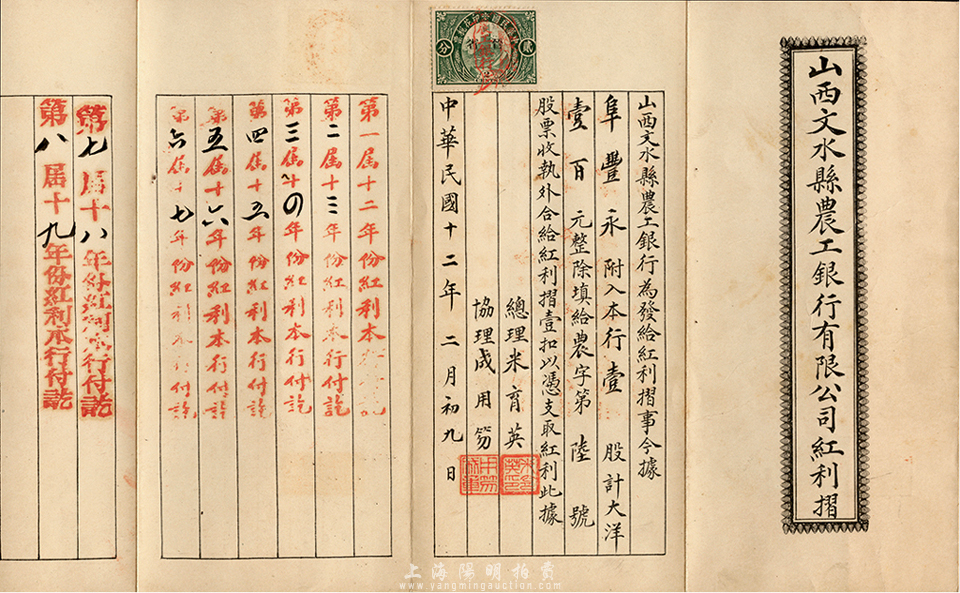 山西文水縣農工銀行有限公司紅利摺
山西文水縣農工銀行為發給紅利摺事今據
阜豐永附入本行壹股計大洋
壹百元整除填給農字第陸號
股票收執外合給紅利摺壹扣以憑支取紅利此據
總理米育英
協理成用笏
中華民國十二年二月初九日
分
貳
第一屆十二年份紅利本行付訖
第二屆十三年份紅利本行付訖
第三屆十四年份紅利本行付訖
第四屆十五年份紅利本行付訖
第五屆十六年份紅利本行付訖
第六屆十七年份紅利本行付訖
第七屆十八年份紅利本行付訖
第八屆十九年份紅利本行付訖
上海陽明拍賣
www.yangmingauction.com